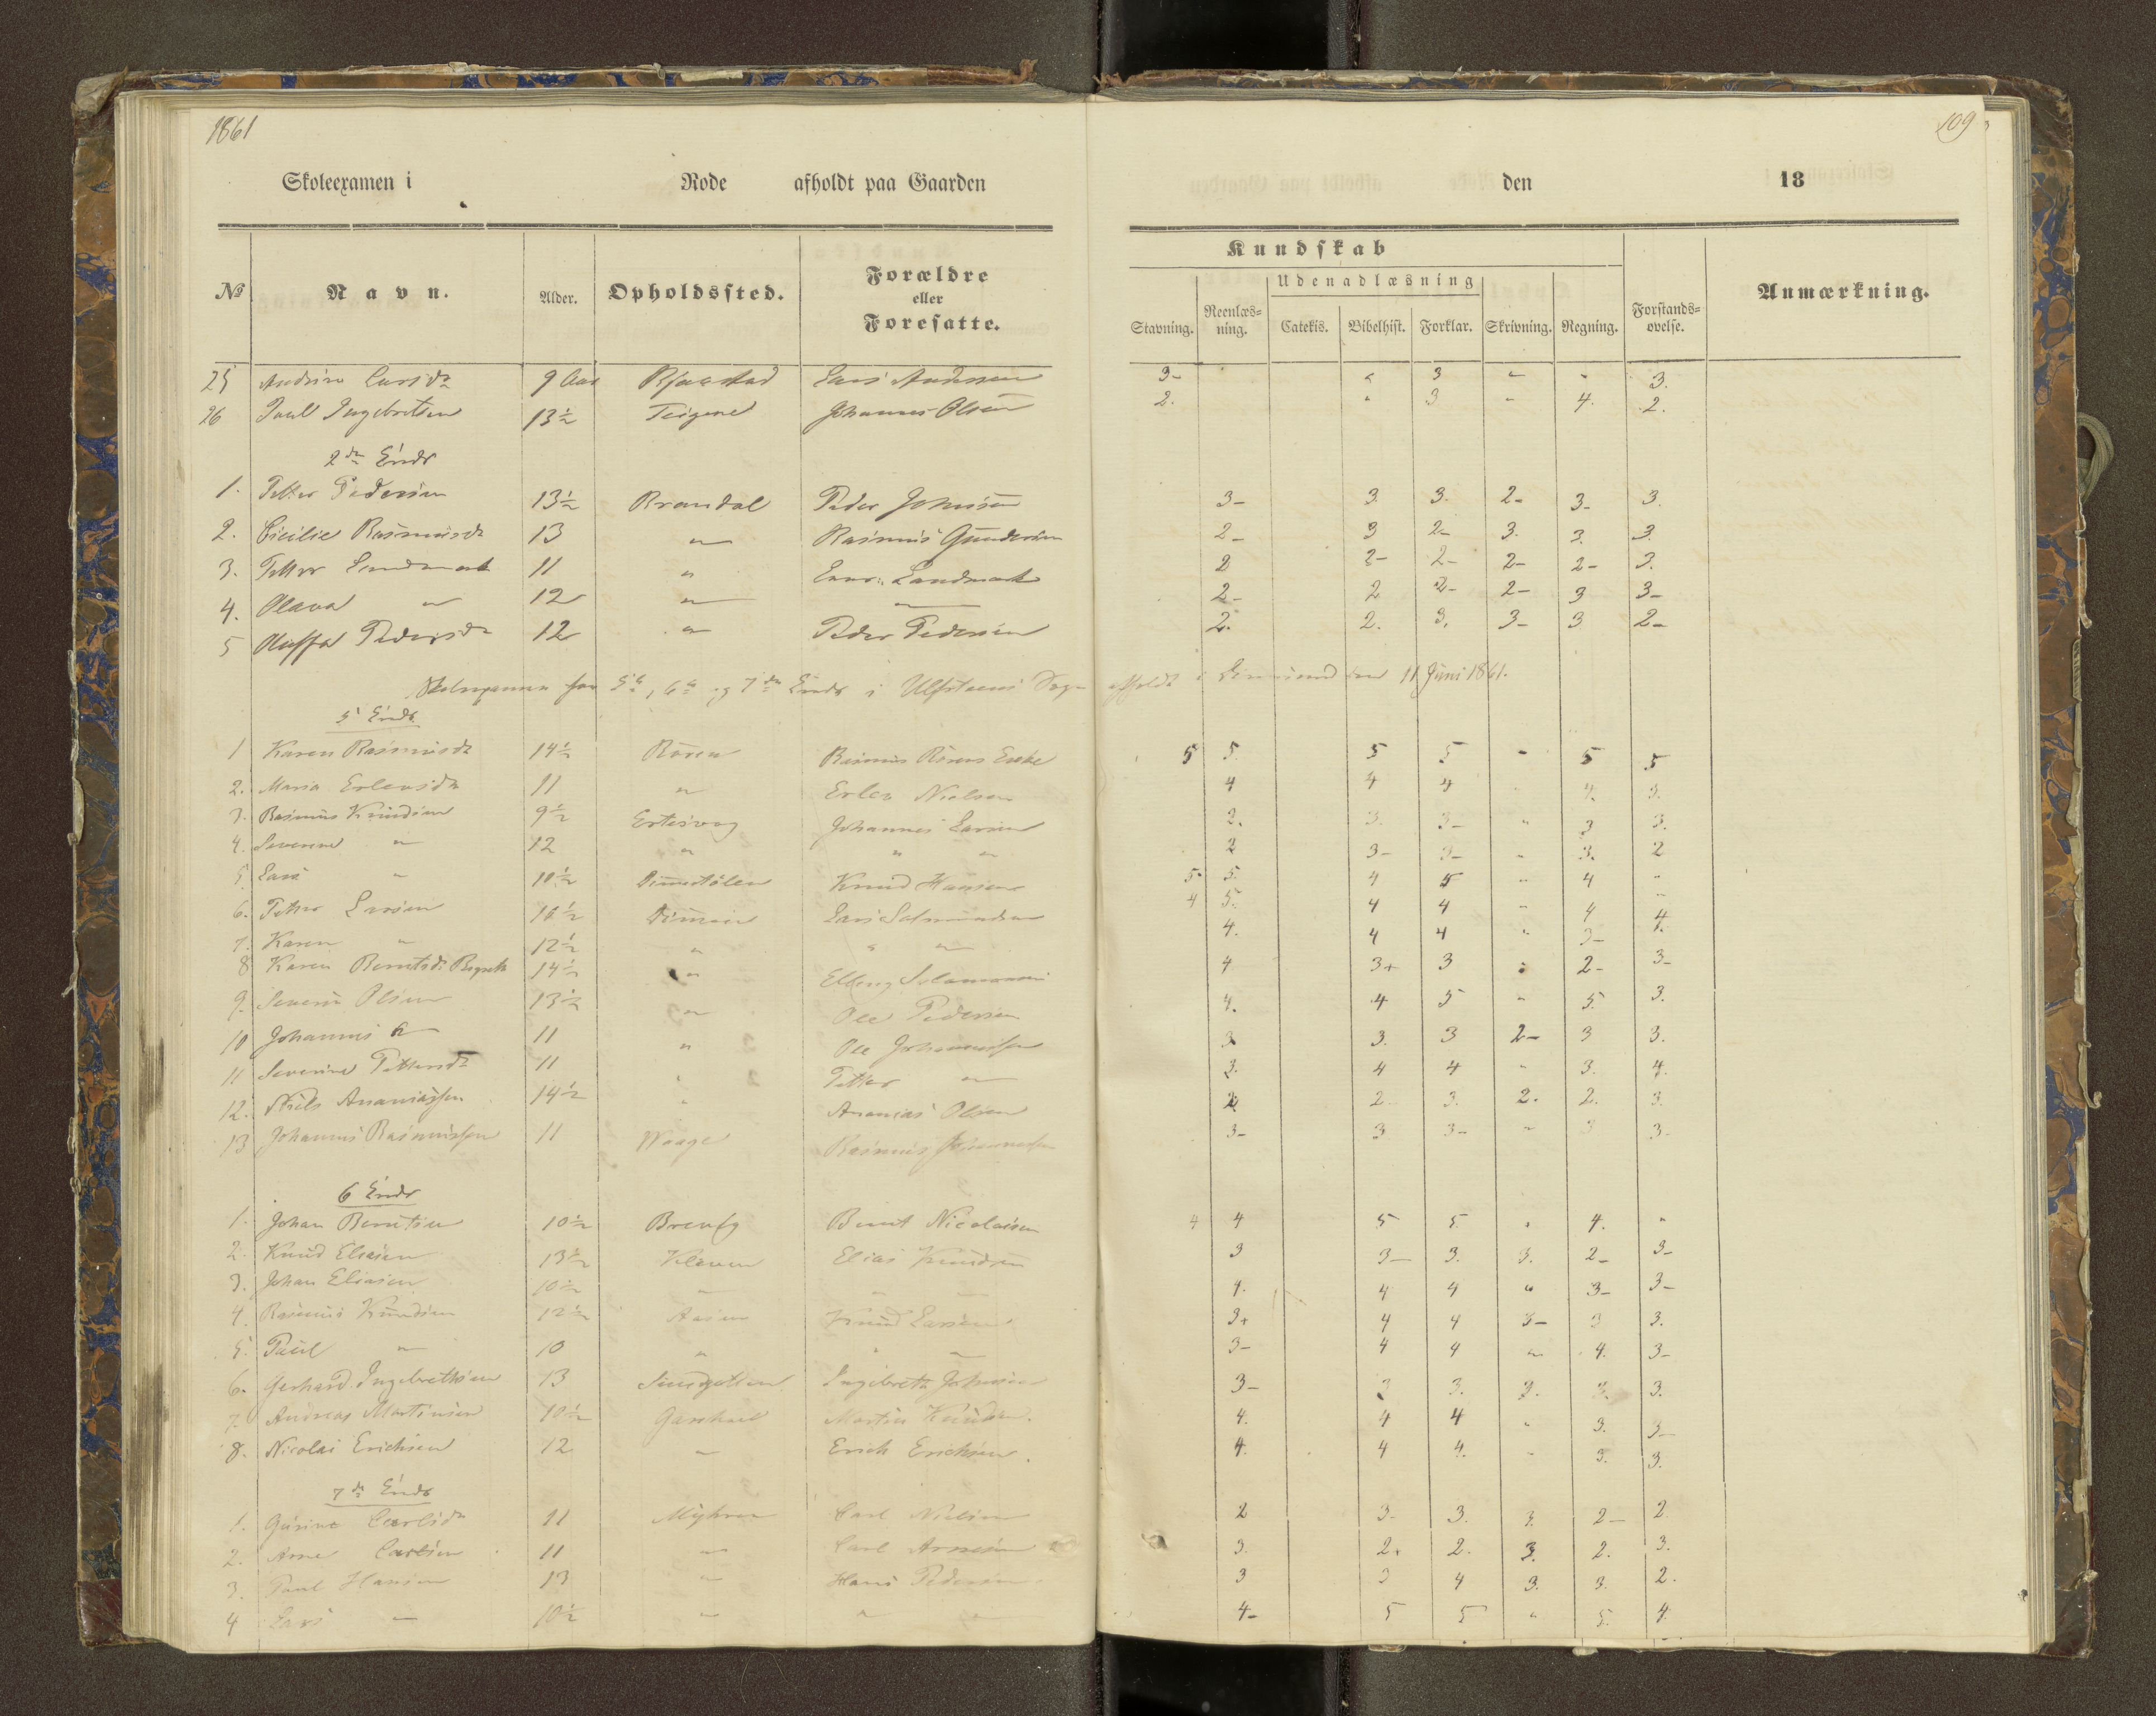 1861
109
Skoleexamen i Rode afholdt paa Gaarden den 18
Kundskab
Udenadlæsning
№ Navn. Alder. Opholdssted. Forældre eller Foresatte. Stavning. Reenlæsning. Catekis. Bibelhist. Forklar. Skrivning. Regning. Forstandsøvelse. Anmærkning.
25 Larsdr 9 Aar Lars Andersen 3- " 3 " - 3.
26 Paul Ingebretsen 13½ Teigene Johannes Olsen 2. " 3 " 4. 2.
2den Ende
1. Petter Pedersen 13½ Brandal Peder Johnsen 3- 3. 3. 2- 3- 3.
2. Cicilie Rasmusdr 13 " Rasmus Gundersen 2- 3 2- 3. 3. 3.
3. Petter Landmark 11 " Landmark 2 2- 2- 2- 2- 3.
4. Olava " 12 " " 2- 2 2- 2- 3 3-
5 Pedersdr 12 " Peder Pedersen 2. 2. 3. 3- 3 2-
Skoleexamen for 5te, 6te og 7de Ende i Ulfsteens Sogn afholdt i den 11 Juni 1861.
5 Ende
1 Karen Rasmusdr 14½ Rasmus 5 5. 5 5 - 5 5
2. Maria Erlensdr 11 " Nielsen 4 4 4 4. 3.
3. Rasmus Knudsen 9½ Johannes Larsen 2. 3. 3- " 3 3.
4. Severine " 12 " " " 2 3- 3- " 3. 2
5. Lars " 10½ Knud Hansen 5- 5. 4 5 " 4 "
6. Petter Larsen Lars 4 5. 4 4 " 4 4
7. Karen " 12½ " " " 4. 4 4 " 3- 4.
8 Karen Berntsdr 14½ " 4 3+ 3 2- 3-
9. Severin Olsen 13½ " Ole Pedersen 4. 4 5 " 5. 3.
10 Johannes 11 " Ole Johannessen 3 3. 3 2- 3 3.
11 Severine Pettersdr 11 " Petter " 3. 4 4 " 3. 4.
12. Niels Ananiassen 14½ " Ananias Olsen 2 2 3. 2. 2. 3.
13 Johannes Rasmussen 11 Waage Rasmus Johannessen 3- 3 3- " 3 3-
6 Ende
1. Johan Berntsen 10½ Bernt Nicolaisen 4 4 5 5. " 4. "
2. Knud Eliasen 13½ Kleven Elias Knudsen 3 3- 3. 3. 2- 3-
3. Johan Eliasen 10½ " " " 4. 4 4 " 3- 3-
4. Rasmus Knudsen 12½ Aasen Knud Larsen 3+ 4 4 3- 3 3.
5. Paul " 10 " " " 3- 4 4 " 4. 3-
6. Gerhard Ingebrethsen 13 Ingebreth Johnsen 3- 3 3. 3. 3. 3.
7. Andreas Martinsen 10½ Martin Knudsen. 4. 4 4 " 3. 3-
8. Nicolai Erichsen 12 " Erich Erichsen. 4. 4 4. " 3. 3.
7de Ende
1. Carlsdr 11 Myhren Carl Nielsen 2 3- 3. 3. 2- 2
2. Arne Carlsen 11 " Carl Arnesen 3. 2+ 2. 3. 2. 3.
3. Paul Hansen 13 " Hans Pedersen 3 3 4 3. 3. 2.
4 Lars " 10½ " " " 4- 5 5 " 5. 4.